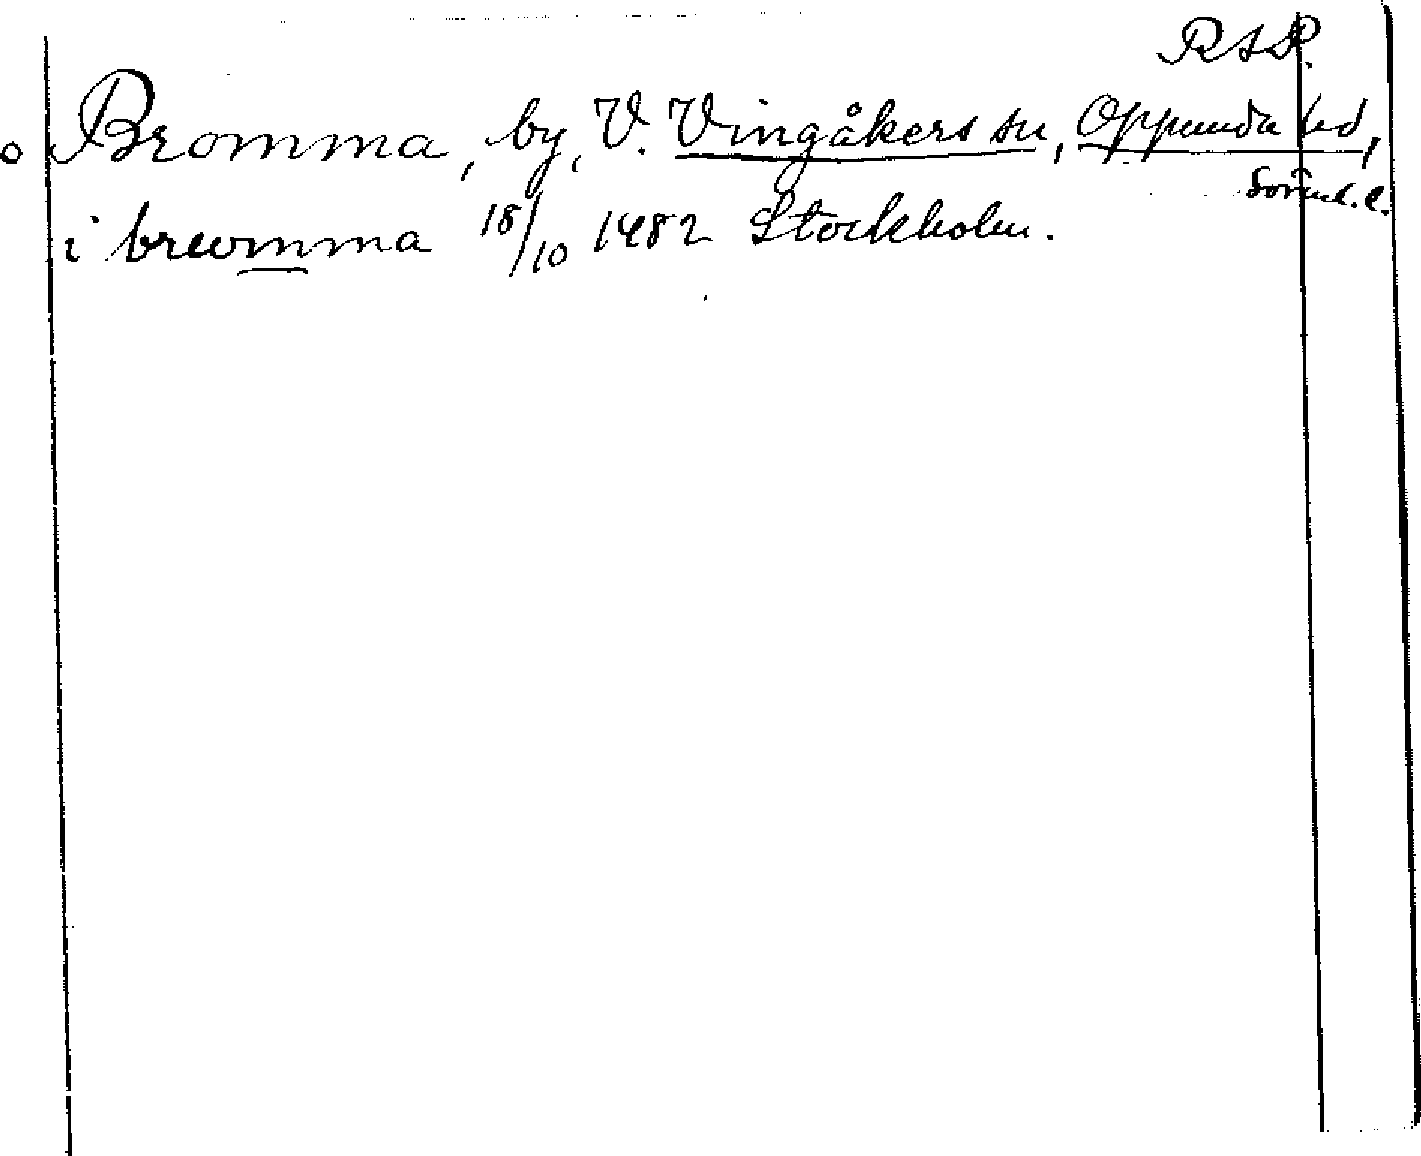 RAP.
Bromma, by, V. Vingåkers sn, Oppunda hd,
Sörml. l.
i brwomma 18/10 1482 Stockholm.